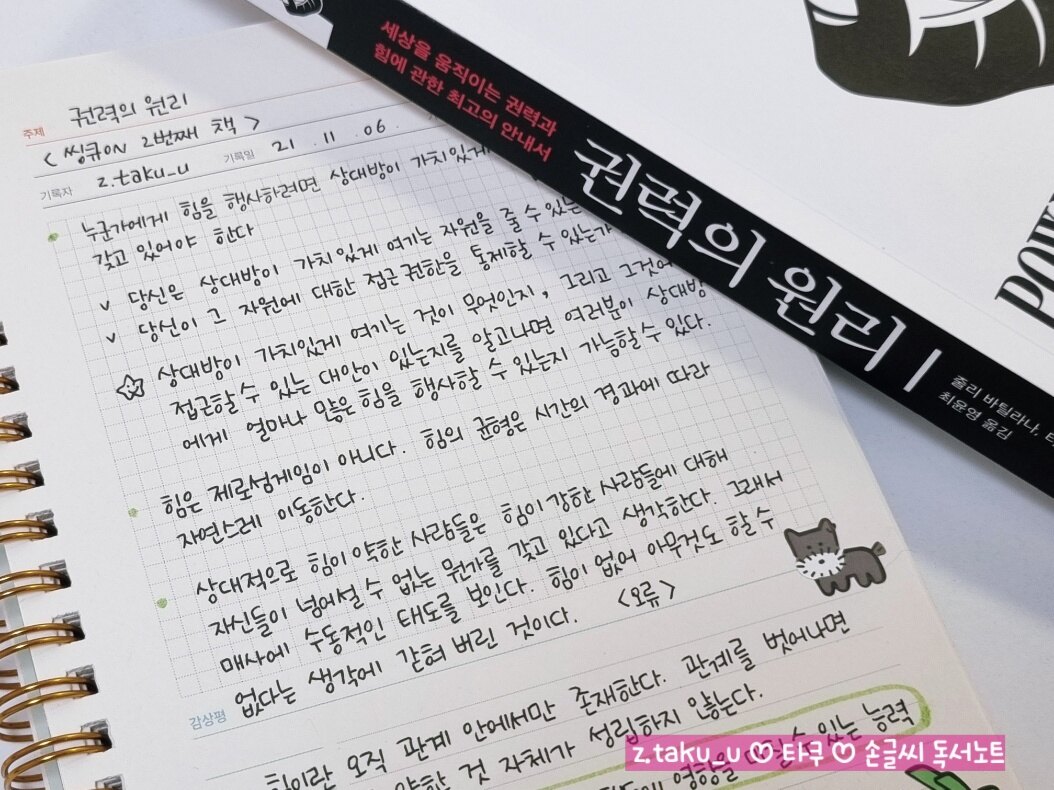 주제 권력의 원리
< 씽큐ON 2번째 책 >
기록자 z.taku_u 기록일 21 . 11 . 06 .
누군가에게 힘을 행사하려면 상대방이 가치있게
갖고 있어야 한다
v 당신은 상대방이 가치있게 여기는 자원을 줄 수 있는
v 당신이 그 자원에 대한 접근 권한을 통제할 수 있는가
상대방이 가치있게 여기는 것이 무엇인지, 그리고 그것에
접근할 수 있는 대안이 있는지를 알고나면 여러분이 상대방
에게 얼마나 많은 힘을 행사할 수 있는지 가늠할 수 있다.
힘은 제로섬게임이 아니다. 힘의 균형은 시간의 경과에 따라
자연스레 이동한다.
상대적으로 힘이 약한 사람들은 힘이 강한 사람들에 대해
자신들이 넘어설 수 없는 뭔가를 갖고 있다고 생각한다. 그래서
매사에 수동적인 태도를 보인다. 힘이 없어 아무것도 할 수
없다는 생각에 갇혀 버린 것이다. <오류>
감상평
힘이란 오직 관계 안에서만 존재한다. 관계를 벗어나면
약한 것 자체가 성립하지 않는다.
영향을 수 있는 능력
세상을 움직이는 권력과
힘에 관한 최고의 안내서
권력의 원리
줄리 바틸라나,
최윤영 옮김
z.taku_u ♡ 타쿠 ♡ 손글씨 독서노트